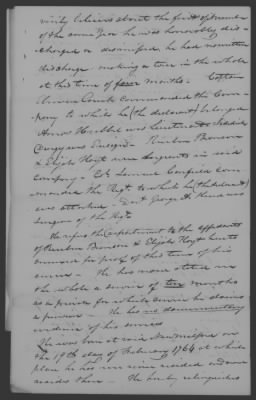 vicinity Believes about the first of November
of the same year he was honorably dis-
charged or dismissed he had no written
discharge making a tour in the whole
at this time of four months - Captain
Couch Commanded the Com-
pany to which he (the declarant) belonged
Amos Hubbel was Lieutenant
Ensign - Reuben Bronson
& Elijah Hoyt were Sergeants in said
Company - Col Samuel Canfield Com-
manded the Regt to which he (the declarant)
was attached - Doct George A.
Surgeon of the Regt
He refers the department to the affidavits
of Reuben Bronson & Elijah Hoyt hereto
annexed for proof of this term of his
service - He has now stated in
the whole a service of ten months
as a private for which service he claims
a pension - He has no documentary
evidence of his services
He was born at said New Milford on
the 19th day of February 1764 at which
place he has ever since resided and now
resides there - He hereby relinquishes